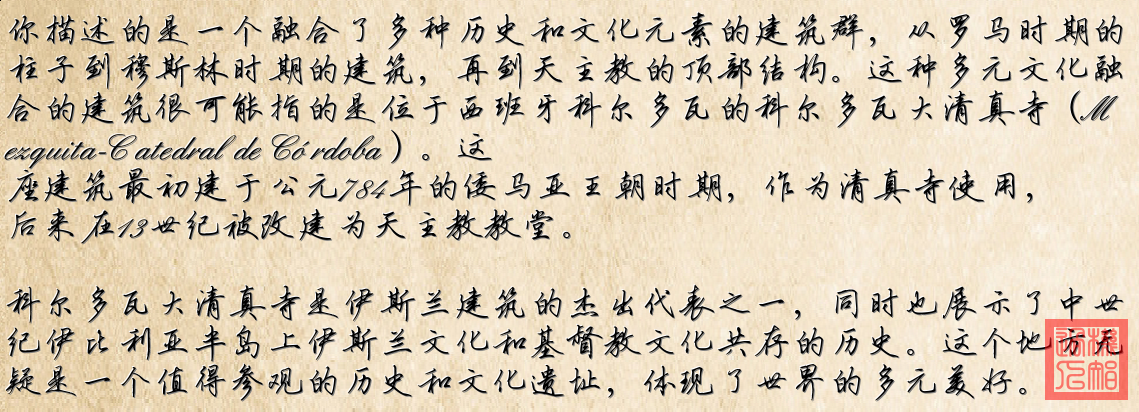 你描述的是一个融合了多种历史和文化元素的建筑群，从罗马时期的
柱子到穆斯林时期的建筑，再到天主教的顶部结构。这种多元文化融
合的建筑很可能指的是位于西班牙科尔多瓦的科尔多瓦大清真寺（M
ezquita-Catedral de Córdoba）。这
座建筑最初建于公元784年的倭马亚王朝时期，作为清真寺使用，
后来在13世纪被改建为天主教教堂。
科尔多瓦大清真寺是伊斯兰建筑的杰出代表之一，同时也展示了中世
纪伊比利亚半岛上伊斯兰文化和基督教文化共存的历史。这个地方无
疑是一个值得参观的历史和文化遗址，体现了世界的多元美好。